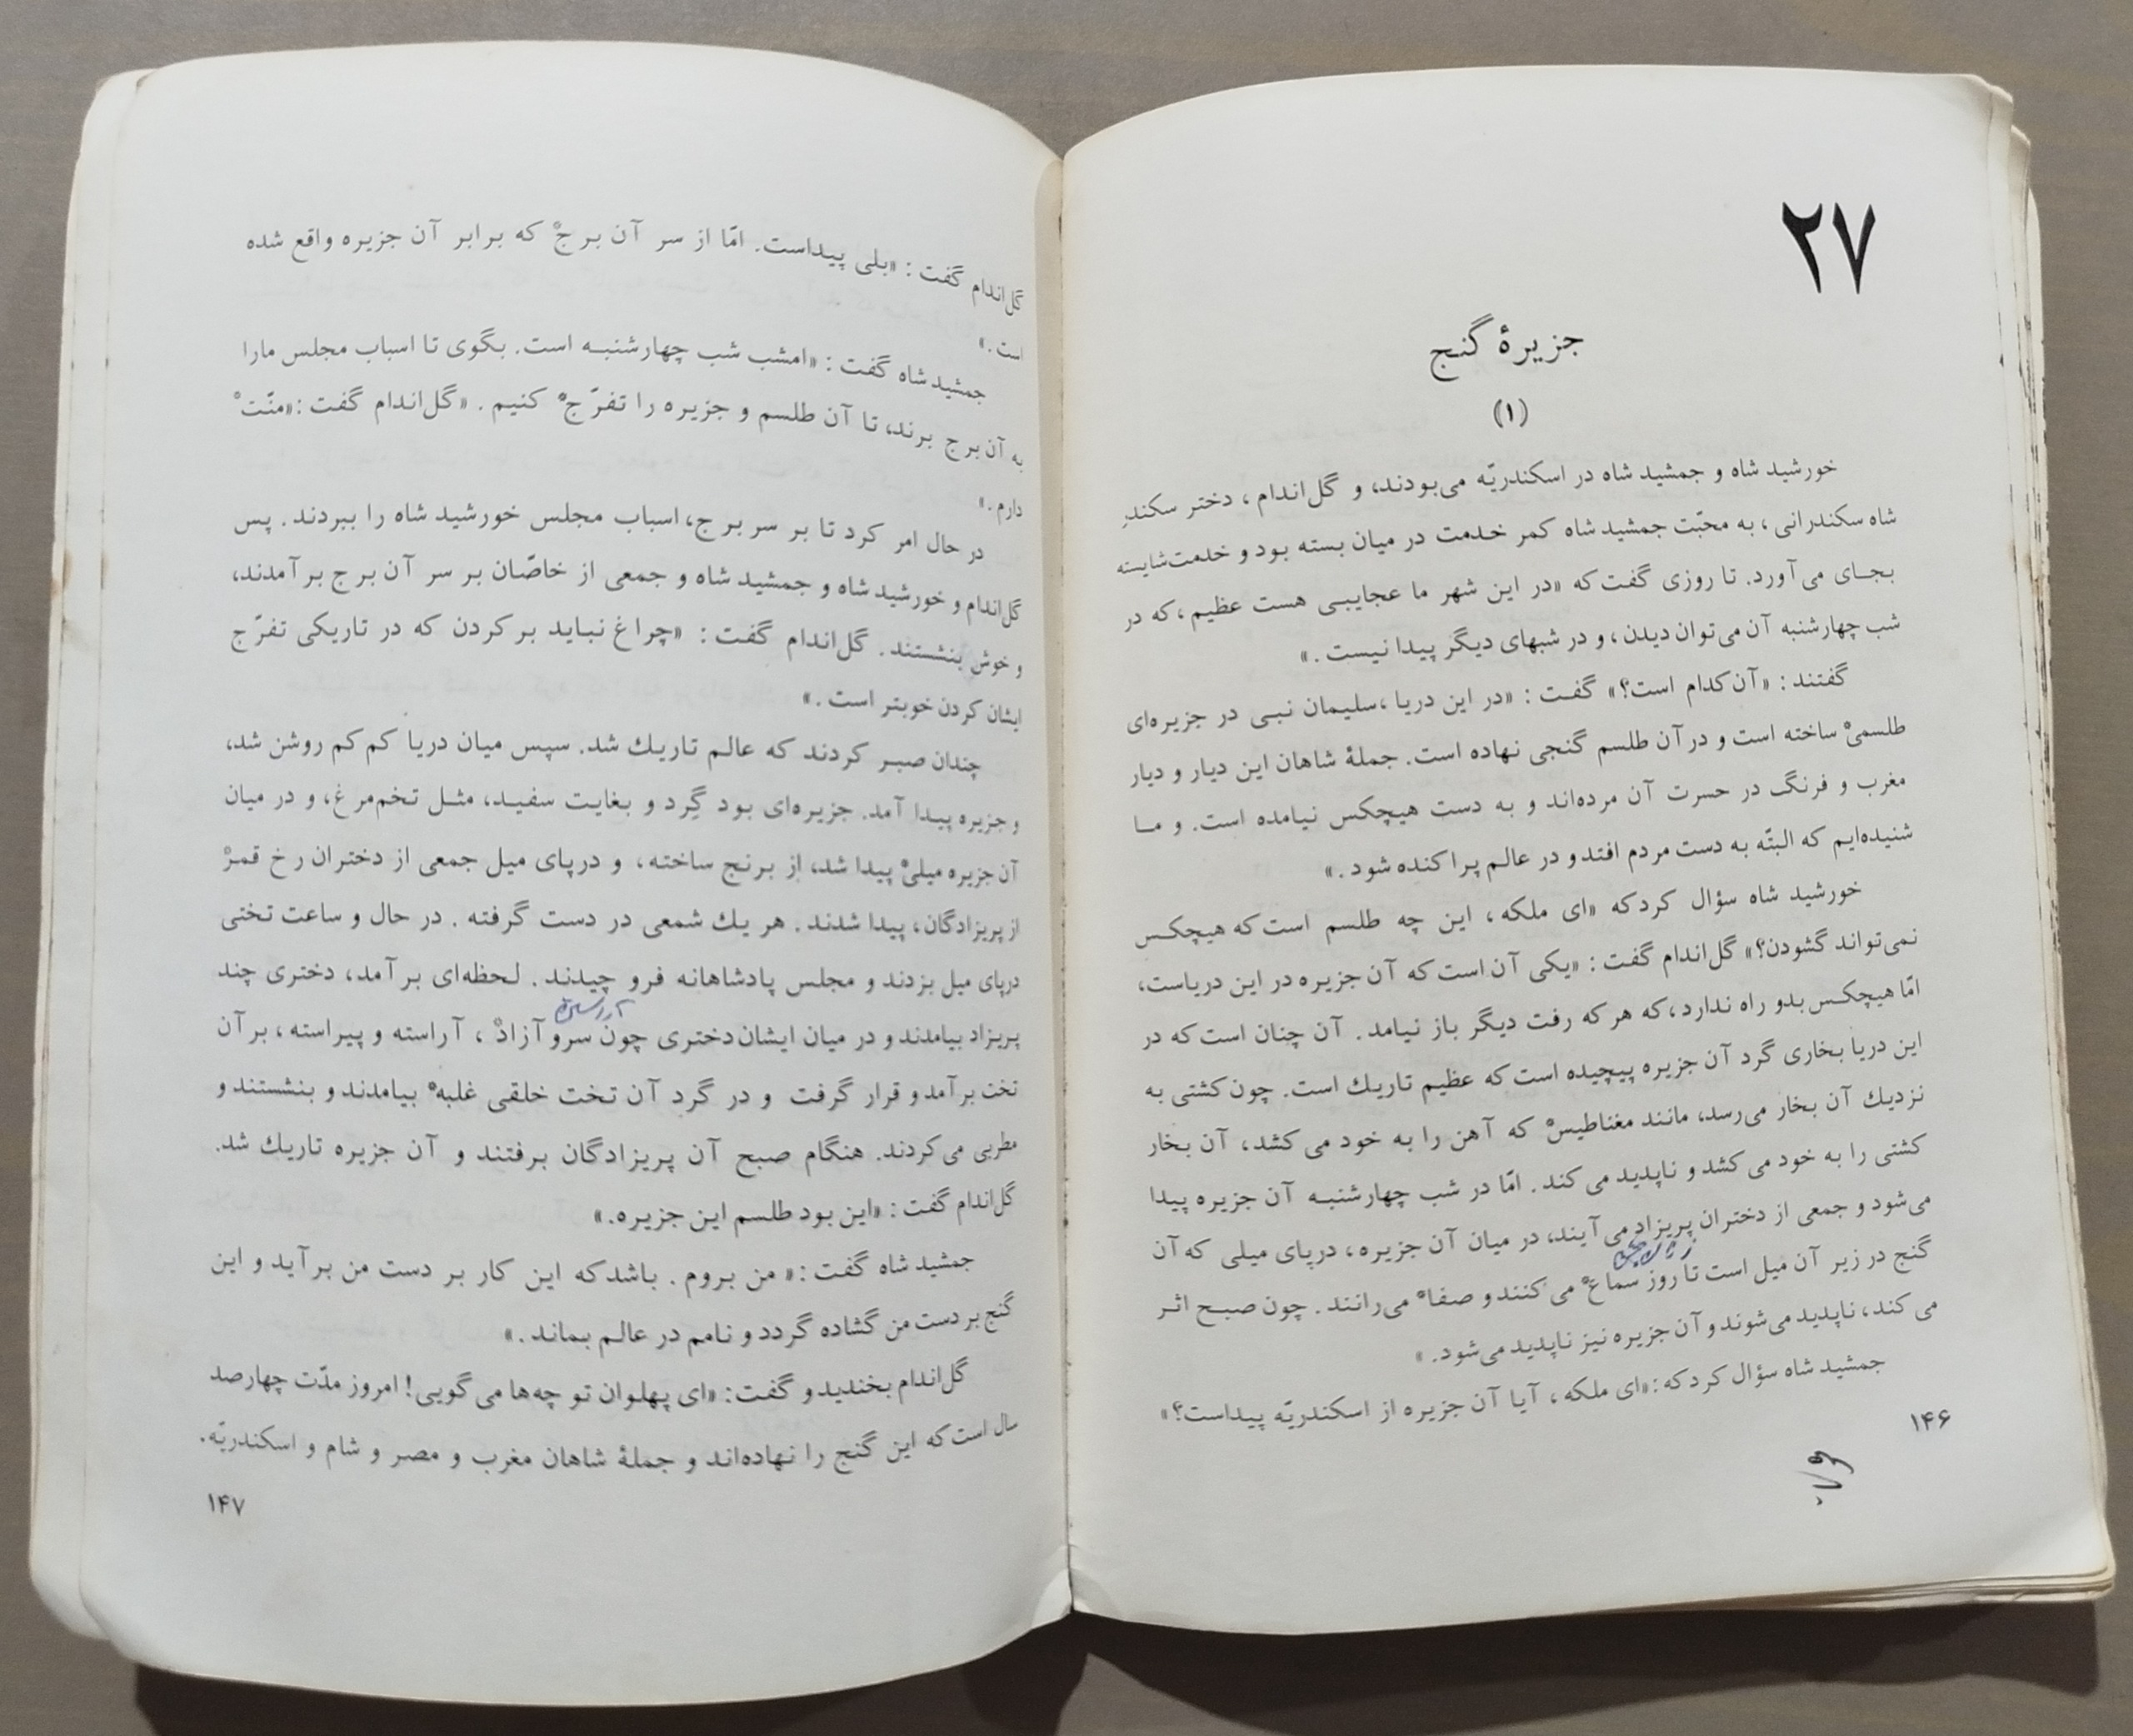 ۲۷
جزیرهٔ گنج
(۱)
خورشید شاه و جمشید شاه در اسکندریّه می‌بودند، و گل‌اندام، دختر سکندرِ
شاه سکندرانی، به محبّت جمشید شاه کمر خدمت در میان بسته بود و خدمت‌شایسته
بجای می‌آورد. تا روزی گفت که «در این شهر ما عجایبی هست عظیم، که در
شب چهارشنبه آن می‌توان دیدن، و در شبهای دیگر پیدا نیست.»
گفتند: «آن کدام است؟» گفت: «در این دریا، سلیمان نبی در جزیره‌ای
طلسمیْ ساخته است و در آن طلسم گنجی نهاده است. جملهٔ شاهان این دیار و دیار
مغرب و فرنگ در حسرت آن مرده‌اند و به دست هیچکس نیامده است. و ما
شنیده‌ایم که البتّه به دست مردم افتد و در عالم پراکنده شود.»
خورشید شاه سؤال کرد که «ای ملکه، این چه طلسم است که هیچکس
نمی‌تواند گشودن؟» گل‌اندام گفت: «یکی آن است که آن جزیره در این دریاست،
امّا هیچکس بدو راه ندارد، که هر که رفت دیگر باز نیامد. آن چنان است که در
این دریا بخاری گرد آن جزیره پیچیده است که عظیم تاریك است. چون کشتی به
نزدیك آن بخار می‌رسد، مانند مغناطیسْ که آهن را به خود می‌کشد، آن بخار
کشتی را به خود می‌کشد و ناپدید می‌کند. امّا در شب چهارشنبه آن جزیره پیدا
می‌شود و جمعی از دختران پریزاد می‌آیند، در میان آن جزیره، درپای میلی که آن
گنج در زیر آن میل است تا روز سماعْ می‌کنند و صفاْ می‌رانند. چون صبح اثر
می‌کند، ناپدید می‌شوند و آن جزیره نیز ناپدید می‌شود.»
جمشید شاه سؤال کرد که: «ای ملکه، آیا آن جزیره از اسکندریّه پیداست؟»
۱۴۶
گل‌اندام گفت: «بلی پیداست. امّا از سر آن برجْ که برابر آن جزیره واقع شده
است.»
جمشید شاه گفت: «امشب شب چهارشنبه است. بگوی تا اسباب مجلس مارا
به آن برج برند، تا آن طلسم و جزیره را تفرّجْ کنیم. «گل‌اندام گفت: «منّتْ
دارم.»
در حال امر کرد تا بر سر برج، اسباب مجلس خورشید شاه را ببردند. پس
گل‌اندام و خورشید شاه و جمشید شاه و جمعی از خاصّان بر سر آن برج برآمدند،
و خوش بنشستند. گل‌اندام گفت: «چراغ نباید برکردن که در تاریکی تفرّج
ایشان کردن خوبتر است.»
چندان صبر کردند که عالم تاریك شد. سپس میان دریا کم کم روشن شد،
و جزیره پیدا آمد. جزیره‌ای بود گِرد و بغایت سفید، مثل تخم‌مرغ، و در میان
آن جزیره میلیْ پیدا شد، از برنج ساخته، و درپای میل جمعی از دختران رخ قمرْ
از پریزادگان، پیدا شدند. هر یك شمعی در دست گرفته. در حال و ساعت تختی
درپای میل بزدند و مجلس پادشاهانه فرو چیدند. لحظه‌ای برآمد، دختری چند
پریزاد بیامدند و در میان ایشان دختری چون سرو آزادْ، آراسته و پیراسته، بر آن
تخت برآمد و قرار گرفت و در گرد آن تخت خلقی غلبهْ بیامدند و بنشستند و
مطربی می‌کردند. هنگام صبح آن پریزادگان برفتند و آن جزیره تاریك شد.
گل‌اندام گفت: «این بود طلسم این جزیره.»
جمشید شاه گفت: «من بروم. باشد که این کار بر دست من برآید و این
گنج بر دست من گشاده گردد و نامم در عالم بماند.»
گل‌اندام بخندید و گفت: «ای پهلوان تو چه‌ها می‌گویی! امروز مدّت چهارصد
سال است که این گنج را نهاده‌اند و جملهٔ شاهان مغرب و مصر و شام و اسکندریّه.
۱۴۷